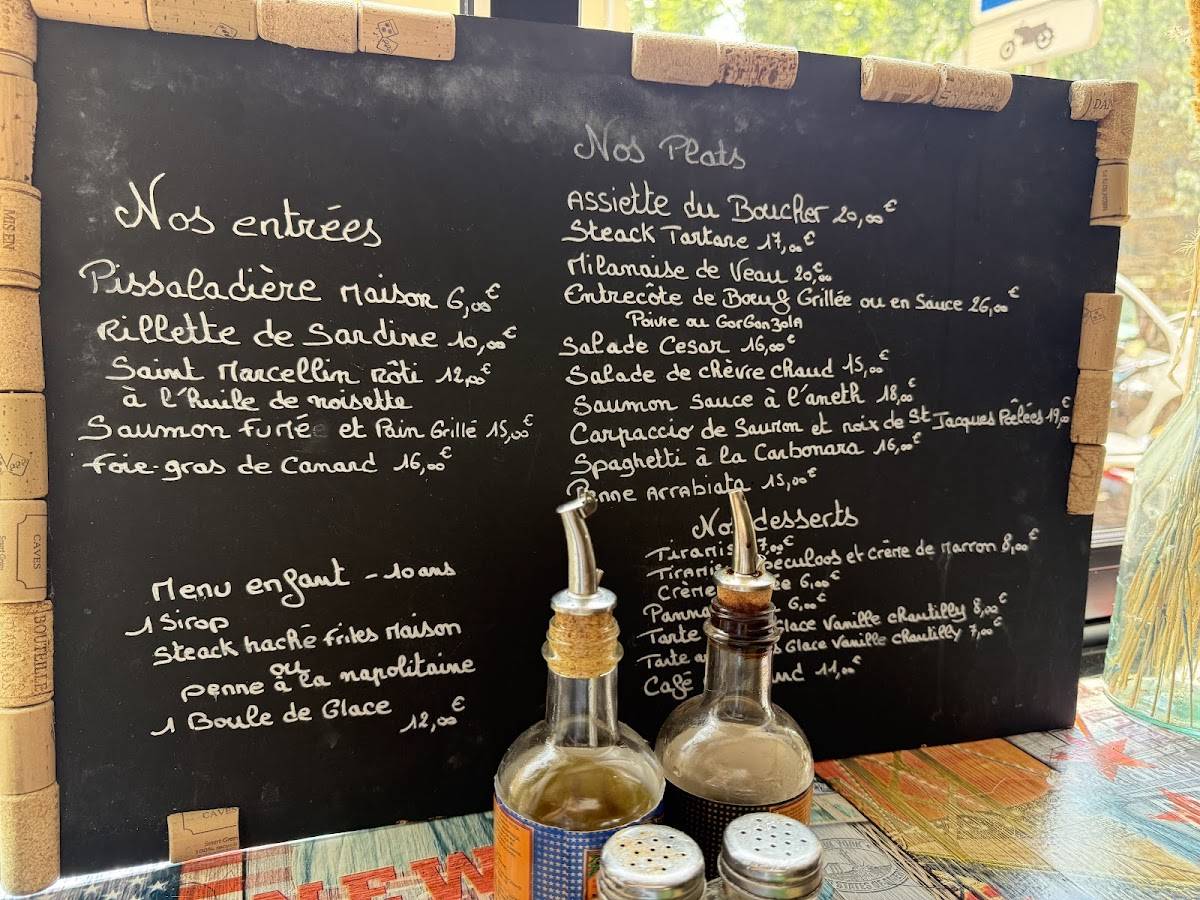 Nos entrées
Pissaladière Maison 6,00€
Rillette de Sardine 10,00€
Saint Marcellin Rôti 12,00€
à l'huile de noisette
Saumon fumé et Pain Grillé 15,00€
Foie-gras de Canard 16,00€
Menu enfant - 10 ans
1 Sirop
Steack haché frites Maison
ou
penne à la napolitaine
1 Boule de Glace 12,00€
Nos Plats
Assiette du Boucher 20,00€
Steack Tartare 17,00€
Milanaise de Veau 20,00€
Entrecôte de Bœuf Grillée ou en Sauce 26,00€
Poivre ou GorGonzola
Salade Cesar 16,00€
Salade de chèvre chaud 15,00€
Saumon Sauce à l'aneth 18,00€
Carpaccio de Saumon et noix de St Jacques Poêlées 19,00€
Spaghetti à la Carbonara 16,00€
Penne Arrabiata 15,00€
Nos desserts
7,00€
Speculoos et Crème de Marron 8,00€
Crème 6,00€
Panna 6,00€
Tarte Glace Vanille chantilly 8,00€
Tarte Glace Vanille chantilly 7,00€
Café 11,00€
MIS EN
CAVES
BOUTEILLE
CAVES
NEW